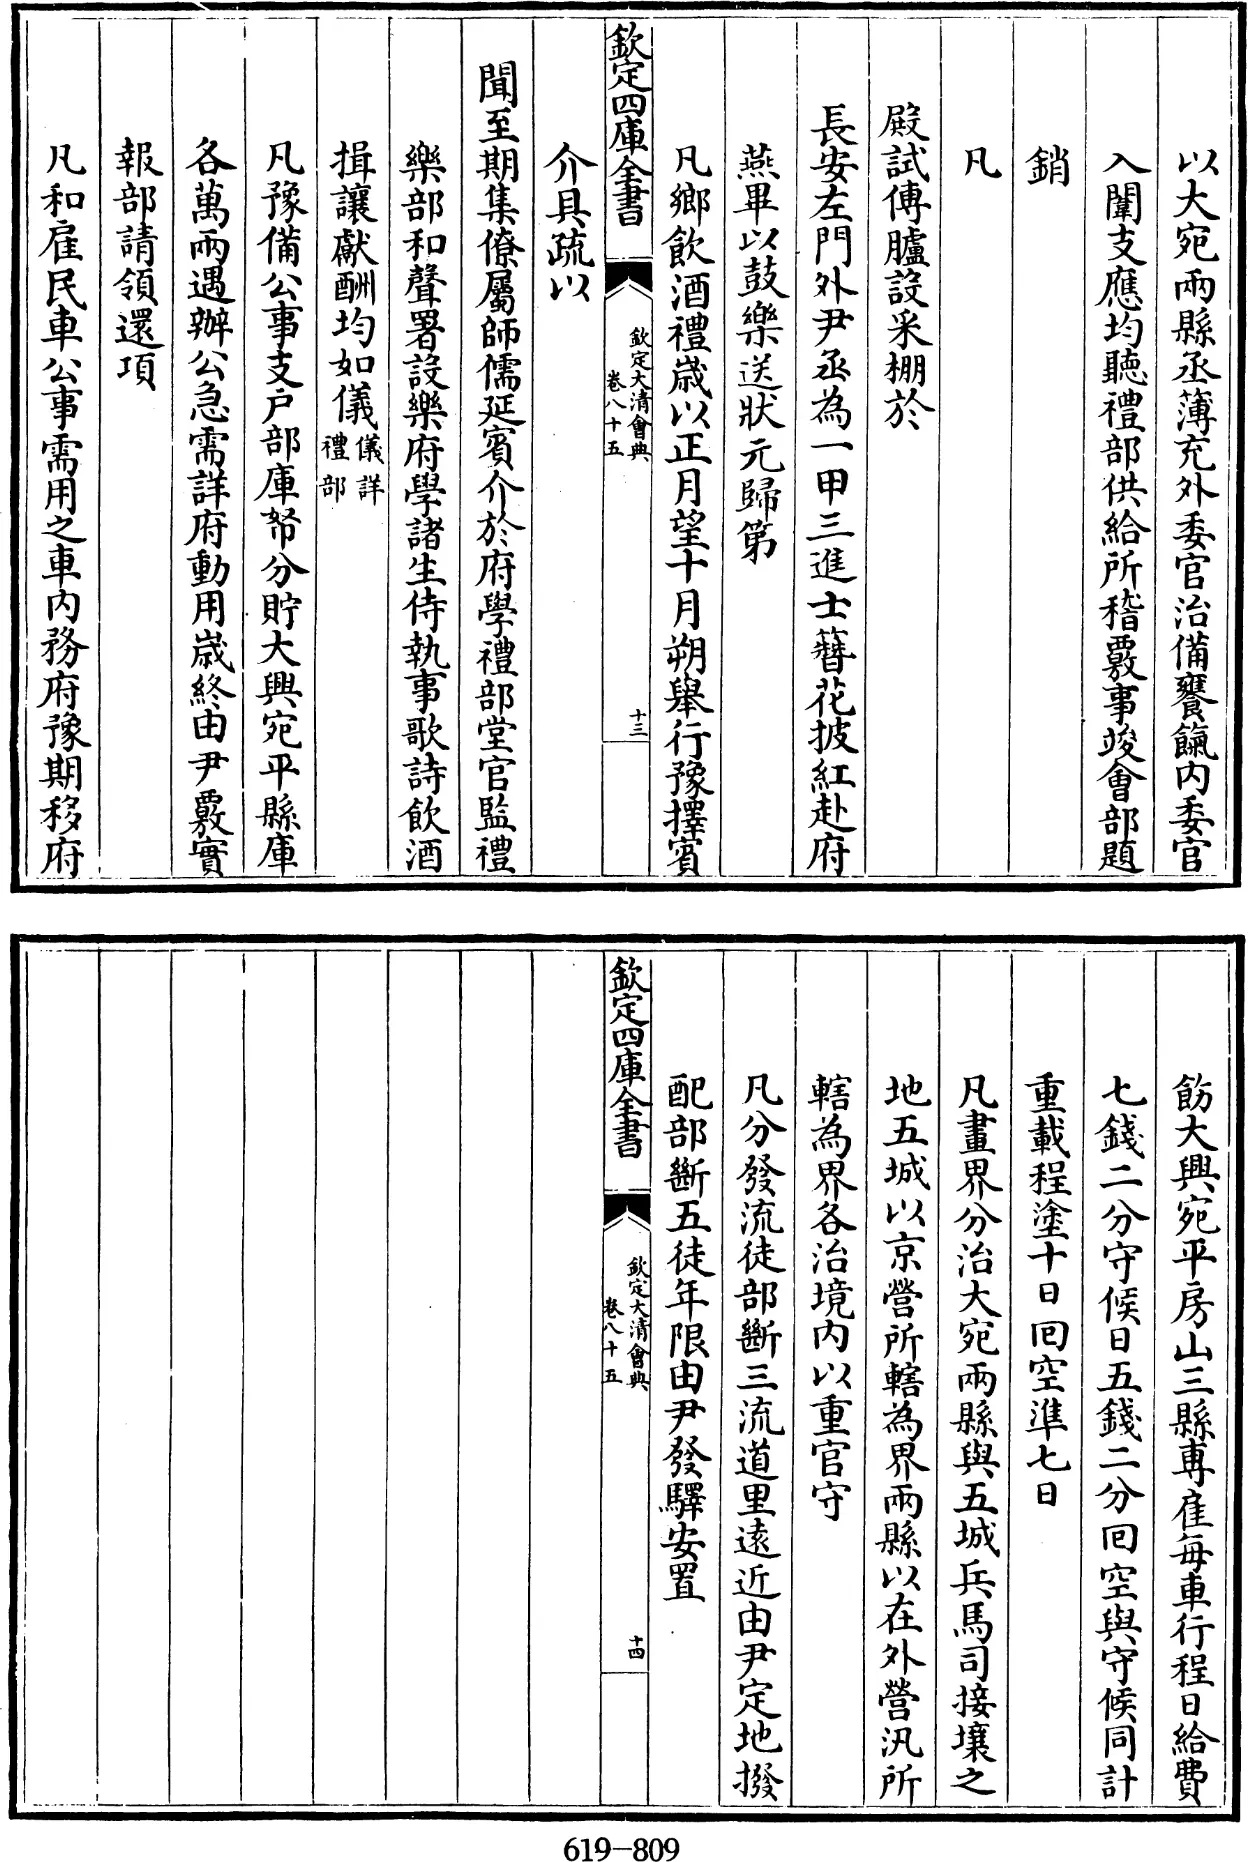 以大宛兩縣丞薄充外委官治備饔餼内委官
入闈支應均聽禮部供給所稽覈事竣會部題
銷
凡
殿試傳臚設采棚於
長安左門外尹丞為一甲三進士簪花披紅赴府
燕畢以鼓樂送狀元歸第
凡鄉飲酒禮歲以正月望十月朔舉行豫擇賓
欽定四庫全書
欽定大清會典
卷八十五
十三
介具疏以
聞至期集僚屬師儒延賓介於府學禮部堂官監禮
樂部和聲署設樂府學諸生侍執事歌詩飲酒
揖讓獻酬均如儀儀詳
禮部
凡豫備公事支户部庫帑分貯大興宛平縣庫
各萬兩遇辦公急需詳府動用歲終由尹覈實
報部請領還項
凡和雇民車公事需用之車内務府豫期移府
飭大興宛平房山三縣專雇每車行程日給費
七錢二分守候日五錢二分囘空與守候同計
重載程塗十日囘空準七日
凡畫界分治大宛兩縣與五城兵馬司接壤之
地五城以京營所轄為界兩縣以在外營汛所
轄為界各治境内以重官守
凡分發流徒部斷三流道里遠近由尹定地撥
配部斷五徒年限由尹發驛安置
欽定四庫全書
欽定大清會典
卷八十五
十四
619-809